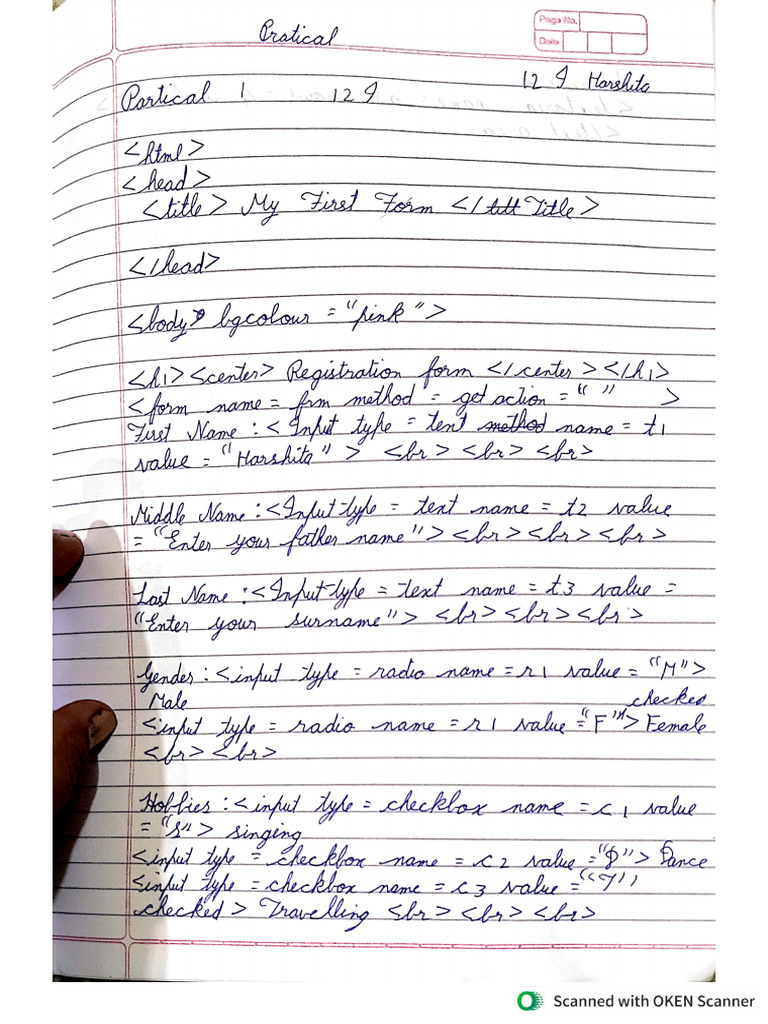 Pratical
Page No.
Date
12 I Harshita
Partical 1 12 I
<html>
<head>
<title> My First Form </ Title>
</head>
<body bgcolour = "pink">
<h1><center> Registration form </center></h1>
<form name = frm method = get action = " " >
First Name : <Input type = text name = t1
value = "Harshita" > <br> <br> <br>
Middle Name : <Input type = text name = t2 value
= "Enter your father name"> <br> <br> <br>
Last Name : <Input type = text name = t3 value =
"Enter your surname"> <br> <br> <br>
Gender : <input type = radio name = r1 value = "M">
Male checked
<input type = radio name = r1 value = "F"> Female
<br> <br>
Hobbies : <input type = checkbox name = c1 value
= "S"> singing
<input type = checkbox name = c2 value = "D"> Dance
<input type = checkbox name = c3 value = "T"
checked> Travelling <br> <br> <br>
Scanned with OKEN Scanner